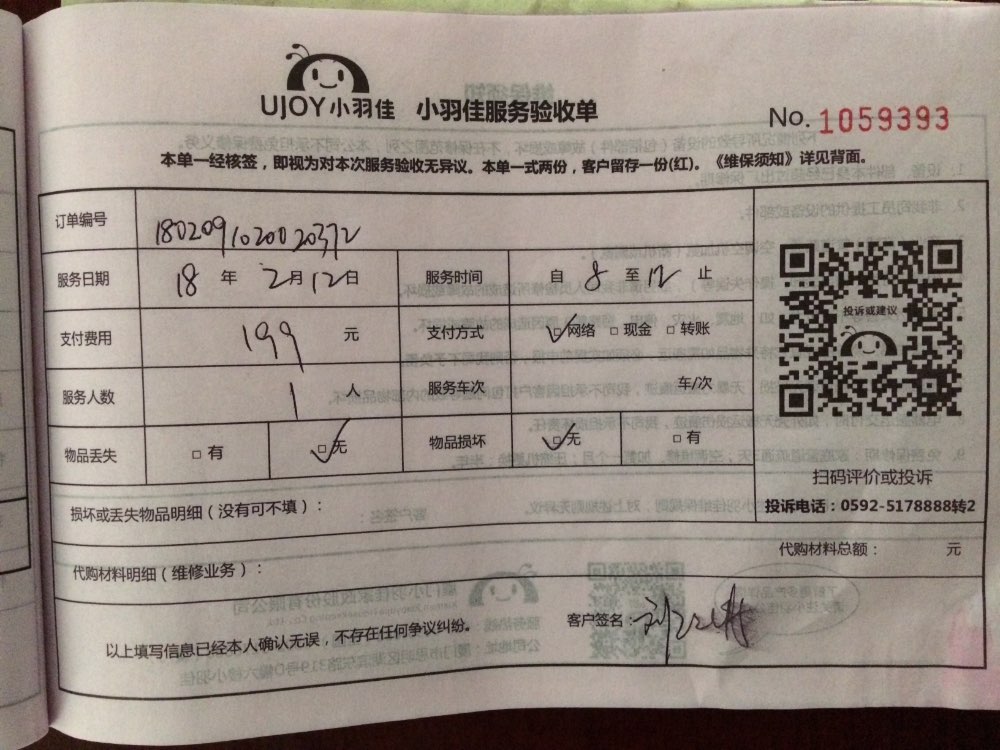 UJOY小羽佳 小羽佳服务验收单
No. 1059393
本单一经核签，即视为对本次服务验收无异议。本单一式两份，客户留存一份(红)。《维保须知》详见背面。
订单编号 1802091020020372
服务日期 18 年 2月12日 服务时间 自 8 至 12 止
支付费用 199 元 支付方式 □网络 □现金 □转账
服务人数 1 人 服务车次 车/次
物品丢失 □有 □无 物品损坏 □无 □有
投诉或建议
扫码评价或投诉
投诉电话：0592-5178888转2
损坏或丢失物品明细（没有可不填）：
代购材料总额： 元
代购材料明细（维修业务）：
客户签名：
以上填写信息已经本人确认无误，不存在任何争议纠纷。